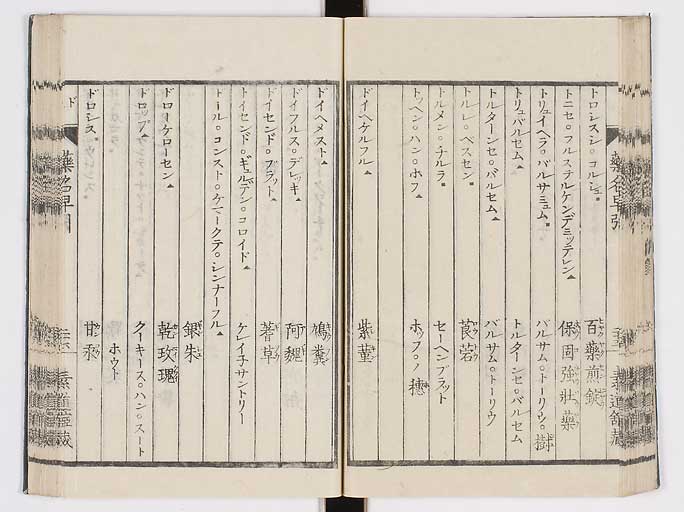 トロシスシ○コルシュ■ 百藥煎錠
トニセ○フルステルケンデミッテレン▲ 保固強壮藥
トリュイヘラ○バルサミュム■ バルサム○トーリウ○樹
トリュバルセム▲ トルターンセ○バルセム
トルターンセ○バルセム▲ バルサム○トーリウ
トルレ○ベスセン■ 莨菪
トルメン○チルラ■ セーヘンブラット
トッペン○ハン○ホフ▲ ホッフ○ノ穗
ドイヘケルフル▲ 紫菫
ドイヘメスト▲ 鳩糞
ドイフルス○デレッキ▲ 阿魏
ドイセンド○ブラット▲ 蓍草
ドイセンド○ギュルデン○コロイド▲ ケレイチサントリー
トール○コンスト○ケマークテ○シンナーフル▲ 銀朱
ドローケローセン▲ 乾玫瑰
ドロップ▲ クーキース○ハン○スート
ホウト
ドロシス○ 甘汞
藥名早引